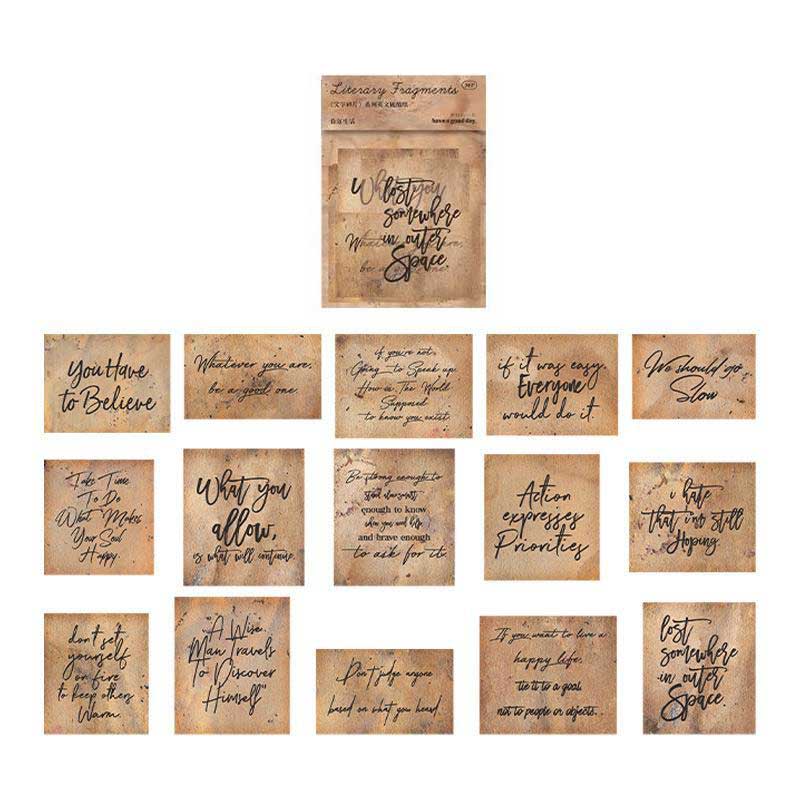 Literary Fragments
《文字碎片》系列英文硫酸纸
have a good day.
lost
somewhere
in outer
Space.
You Have
to Believe
Whatever you are,
be a good one.
if you're not
Going to Speak up
How is The World
Supposed
to know you exist
if it was easy.
Everyone
would do it.
We should go
Slow
Take Time
To Do
What Makes
Your Soul
Happy
What you
allow,
is what will continue.
Be strong enough to
stand alone, smart
enough to know
when you need help
and brave enough
to ask for it.
Action
expresses
Priorities
i hate
that i'm still
Hoping.
don't set
yourself
on fire
to keep others
Warm.
"A Wise
Man Travels
To Discover
Himself"
Don't judge anyone
based on what you heard.
If you want to live a
happy life.
tie it to a goal,
not to people or objects.
lost
somewhere
in outer
Space.